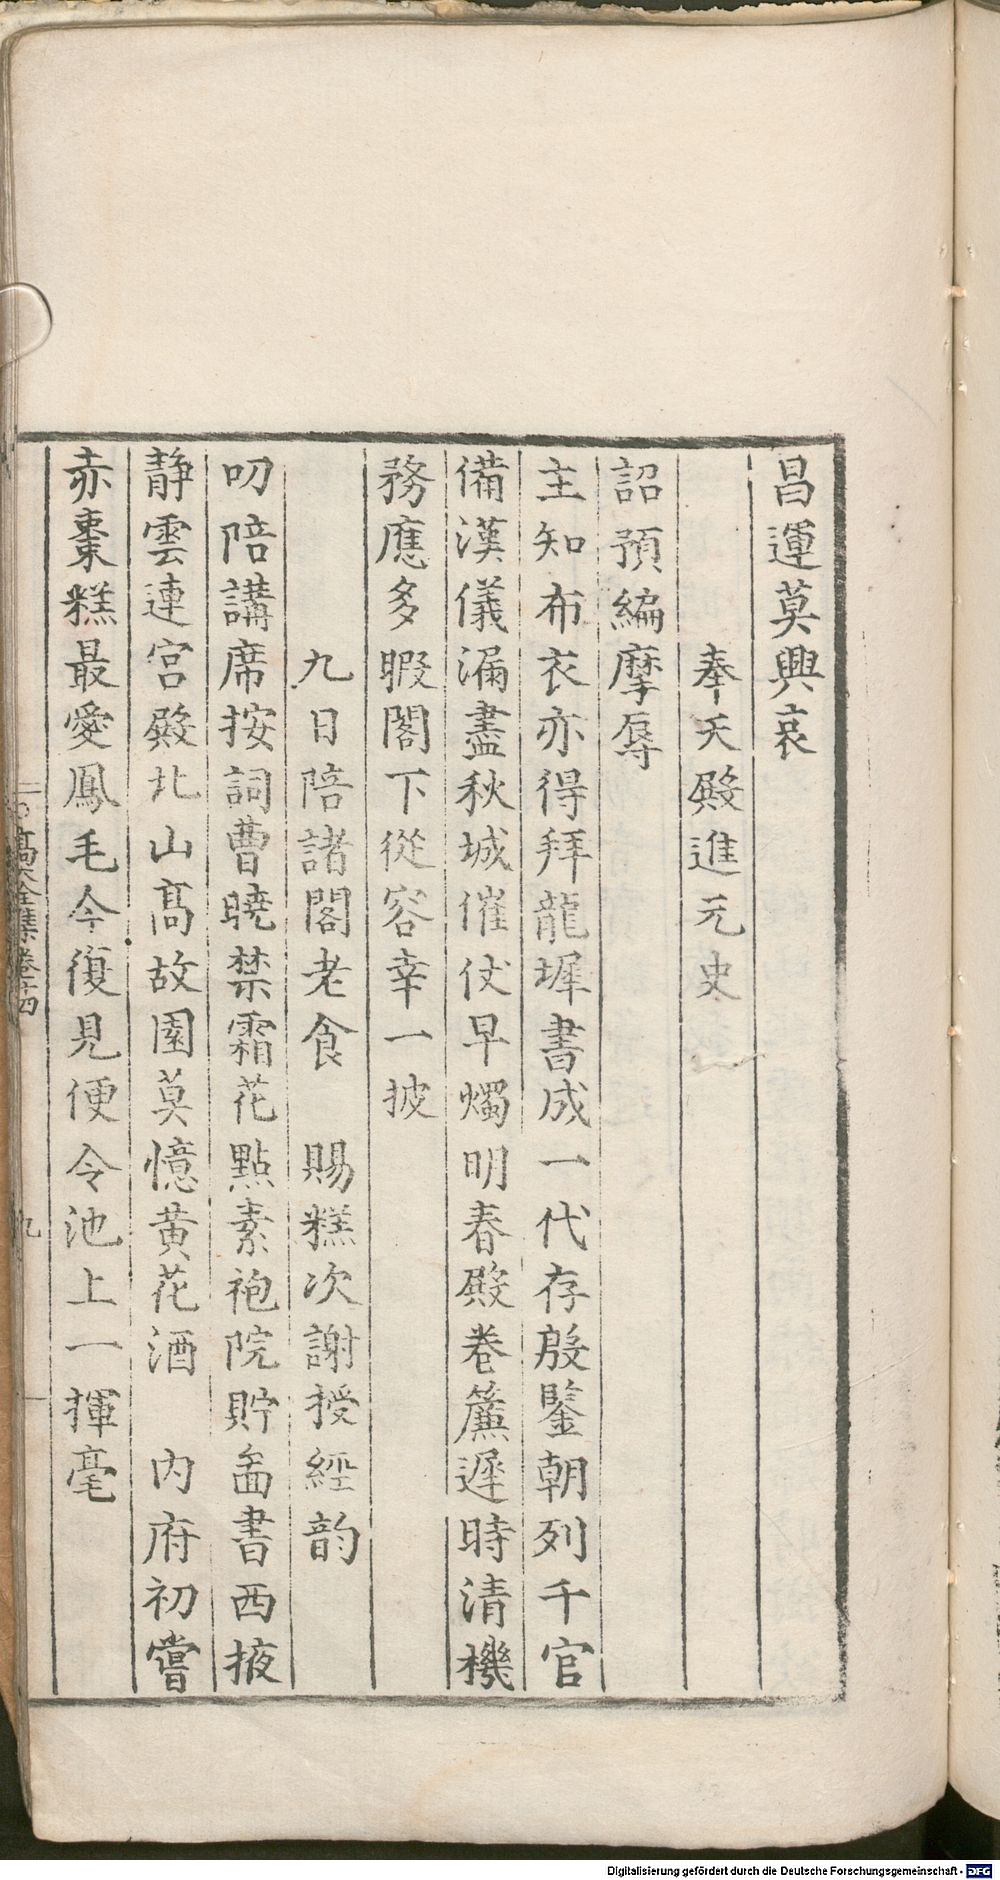 昌運莫興哀
奉天殿進元史
詔預編摩辱
主知布衣亦得拜龍墀書成一代存殷鑒朝列千官
備漢儀漏盡秋城催仗早燭明春殿卷簾遲時清機
務應多暇閣下從容幸一披
九日陪諸閣老食 賜糕次謝授經韵
叨陪講席按詞曹曉禁霜花點素袍院貯畱書西掖
静雲連宮殿北山髙故園莫憶黄花酒 内府初嘗
赤棗糕最愛鳳毛今復見便令池上一揮毫
髙太全集卷十四
九
Digitalisierung gefördert durch die Deutsche Forschungsgemeinschaft - DFG